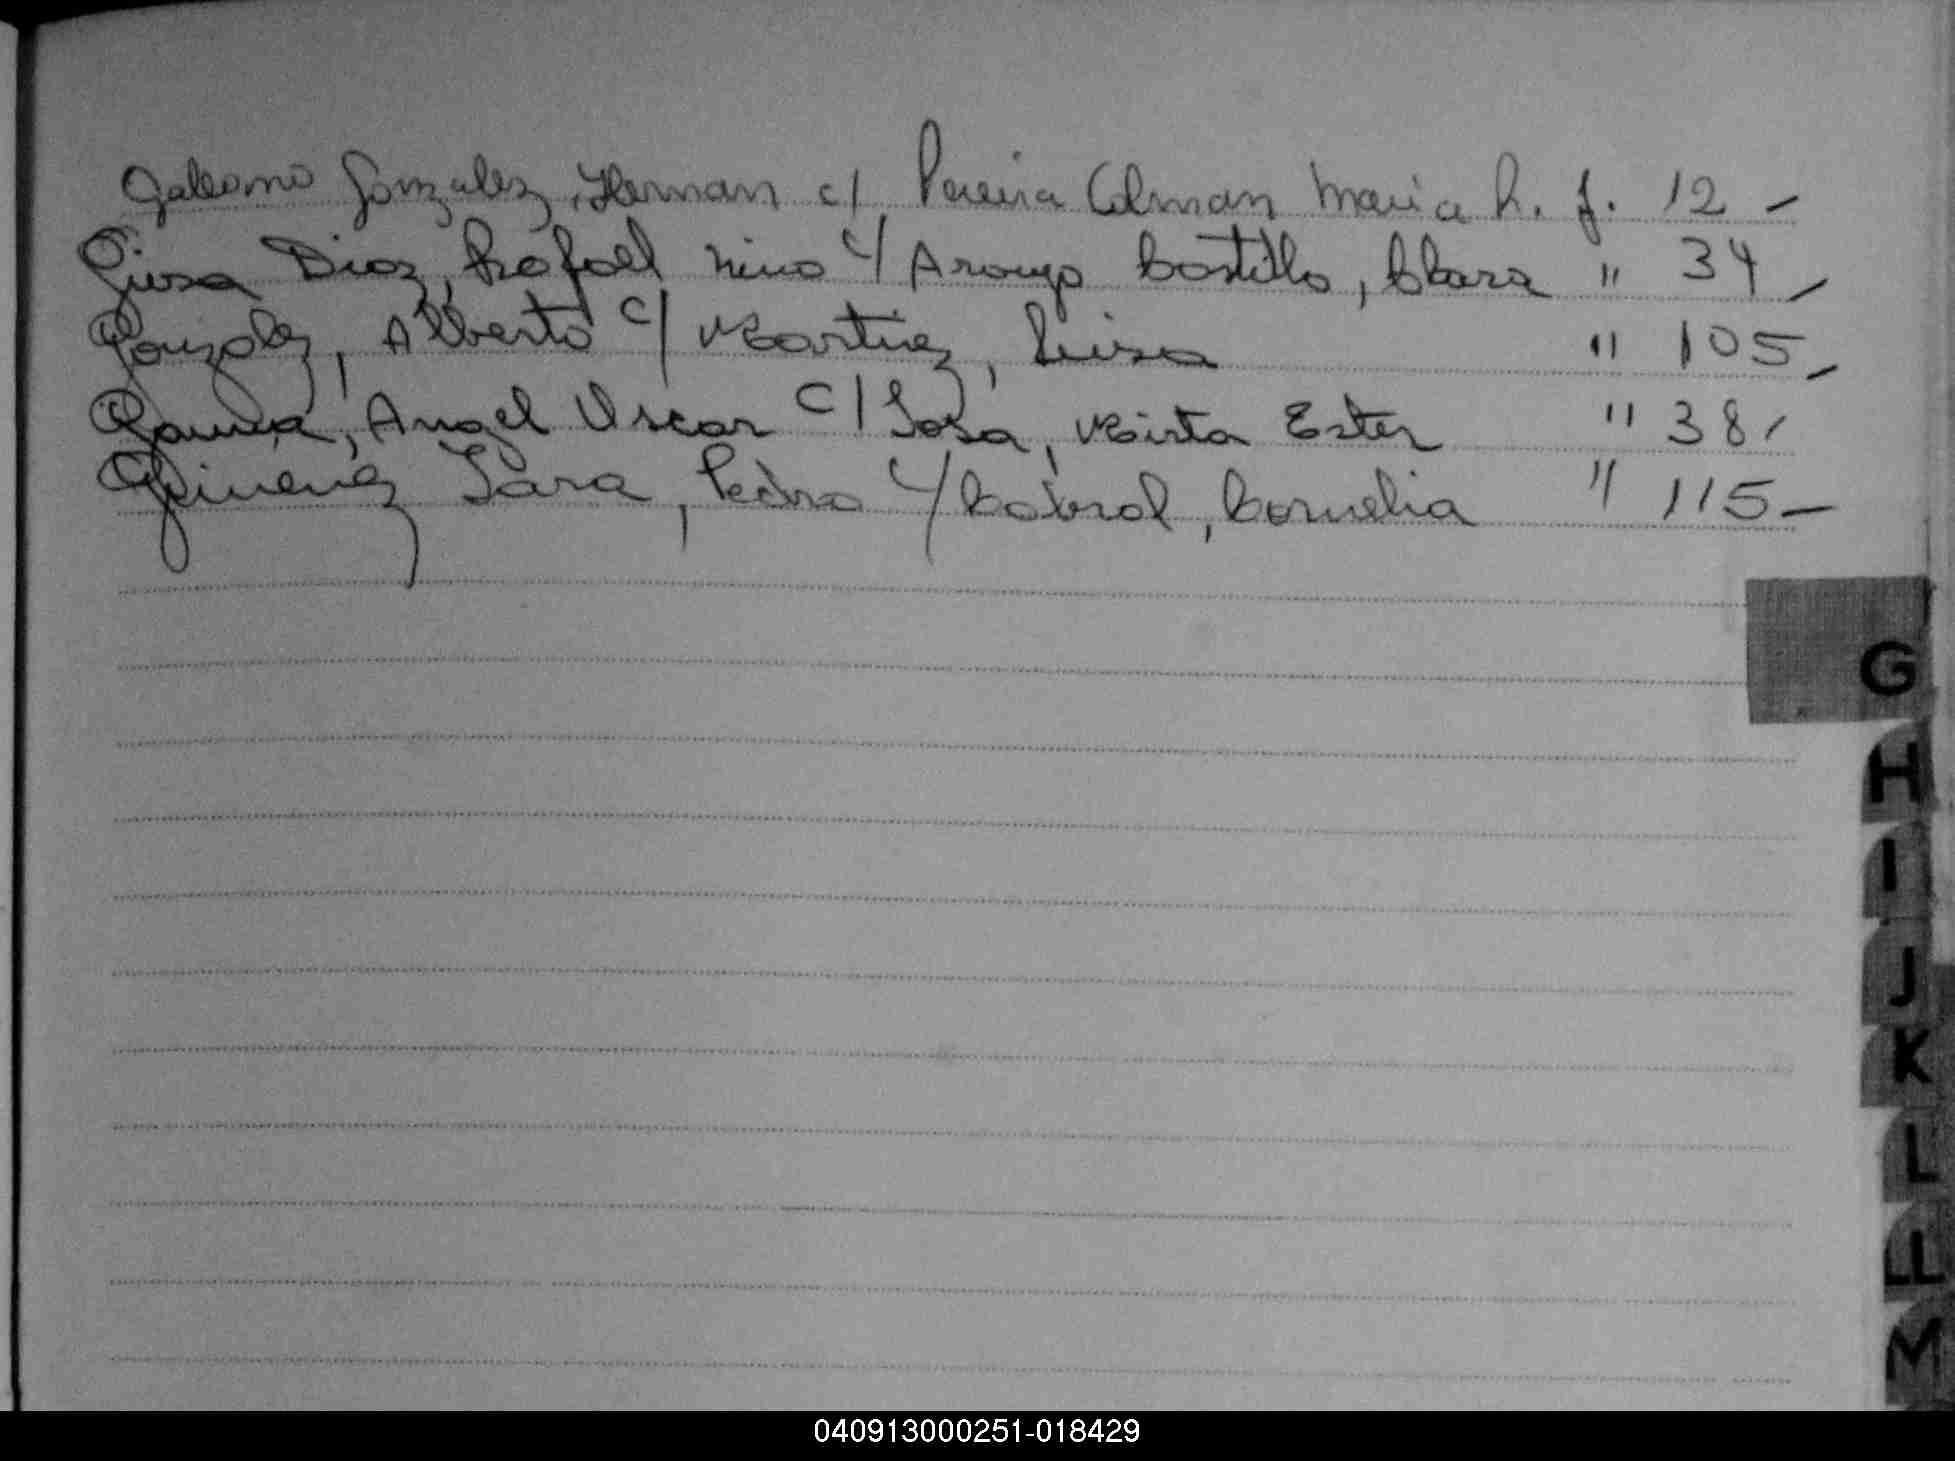 Galeano Gonzalez, Hernan c/ Pereira Colman Maria R. f. 12 -
Diaz, Rafael c/ Arroyo Castillo, Clara " 34 -
Gonzalez, Alberto c/ Martinez, Luisa " 105 -
Garcia, Angel Oscar c/ Sosa, Mirta Ester " 38 -
Gimenez Sara, Pedro c/ Cabral, Cornelia " 115 -
G
H
I
J
K
L
LL
M
040913000251-018429